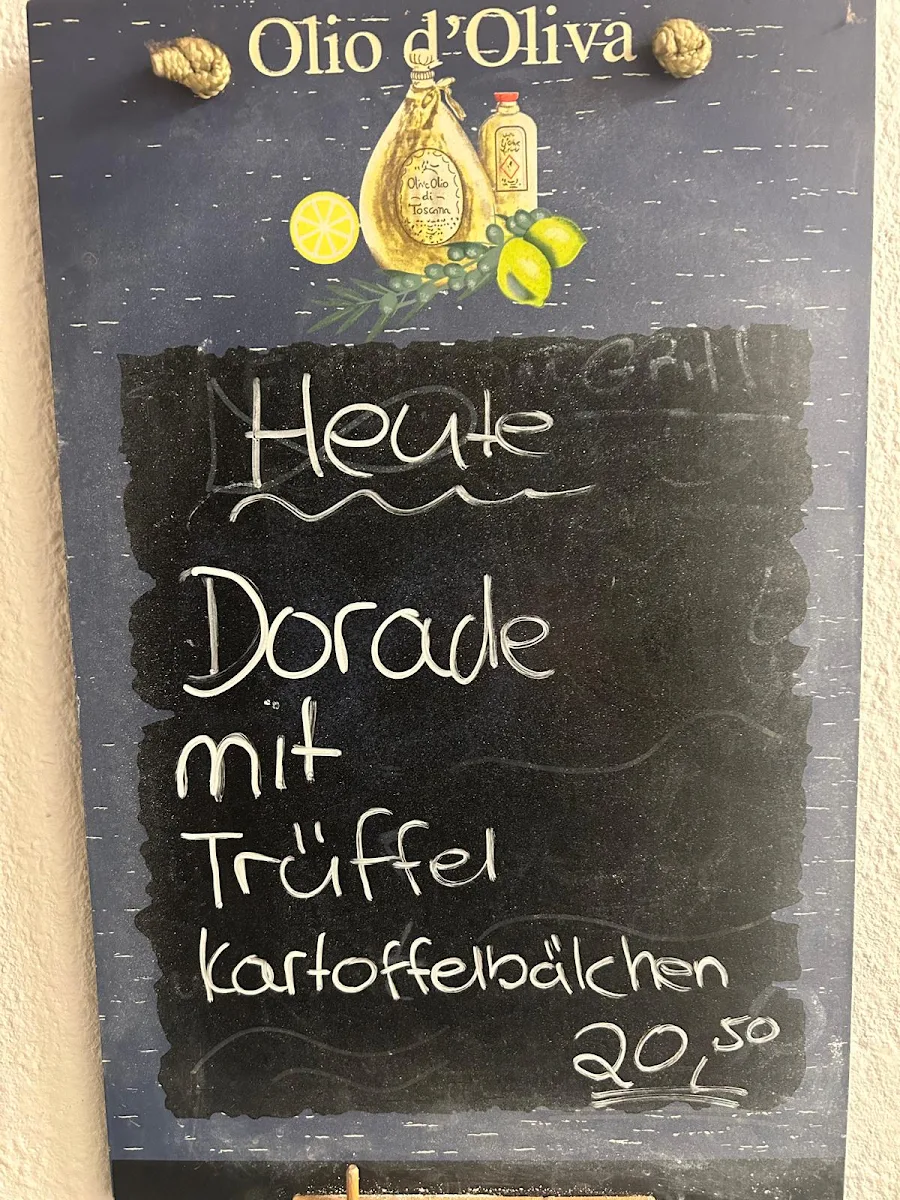 Olio d'Oliva
Olive Olio
di
Toscana
Heute
Dorade
mit
Trüffel
Kartoffelbälchen
20,50